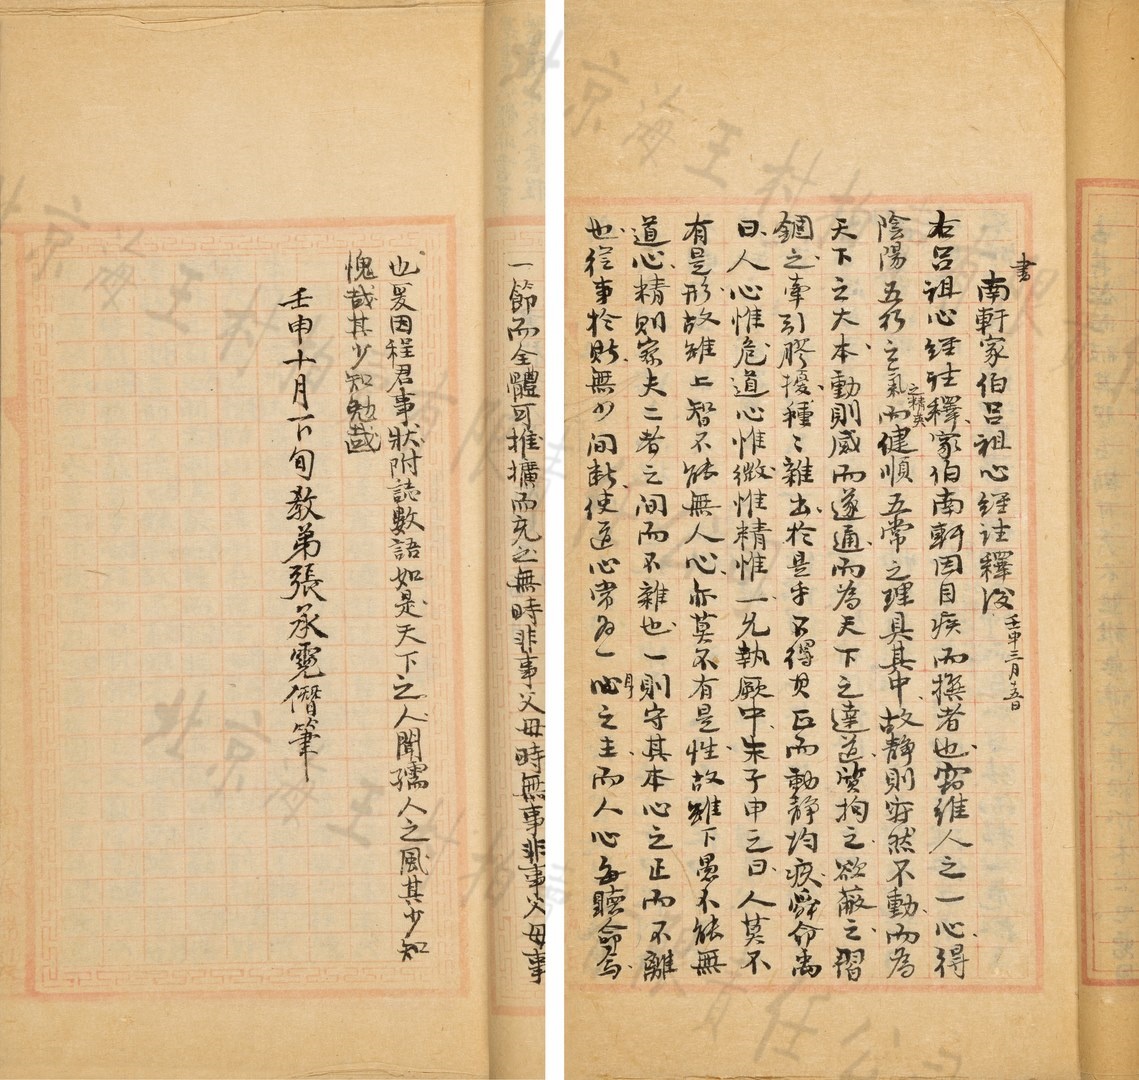 書南軒家伯呂祖心經註釋後 壬申三月五日
右呂祖心經註釋家伯南軒因目疾而撰者也竊維人之一心得
陰陽五行之氣之精英而健順五常之理具其中故靜則寂然不動而為
天下之大本動則感而遂通而為天下之達道質拘之欲蔽之習
錮之牽引膠擾種〻雜出於是乎不得其正而動靜均疚舜命禹
曰人心惟危道心惟微惟精惟一允執厥中朱子申之曰人莫不
有是形故雖上智不能無人心亦莫不有是性故雖下愚不能無
道心精則察夫二者之間而不雜也一則守其本心之正而不離
也從事於斯無少間斷使道心常為一身之主而人心每聽命焉
一節而全體可推擴而充之無時非事父母時無事非事父母事
也爰因程君事狀附誌數語如是天下之人聞孺人之風其少知
愧哉其少知勉哉
壬申十月下旬教弟張承霓僭筆
北京海王村拍賣有限責任公司